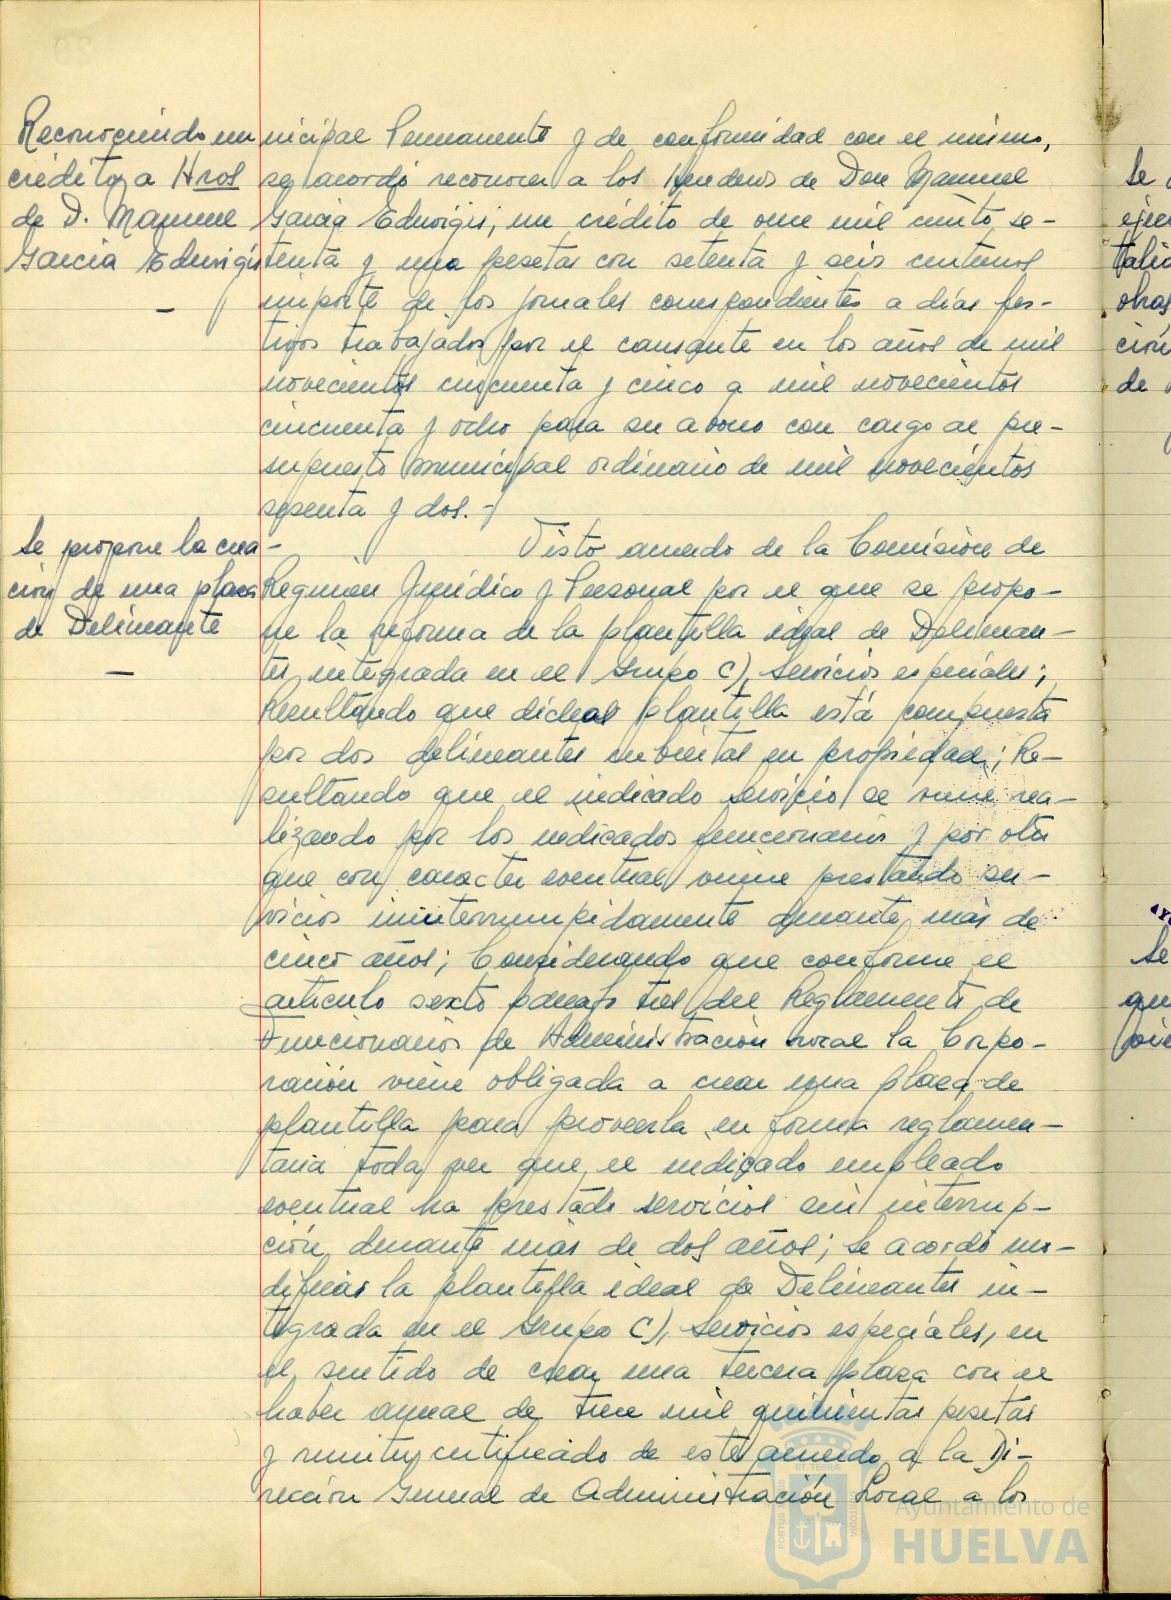 Reconociendo un
crédito a Hros
de D. Manuel
García Eduvigis
—
nicipal Permanente y de conformidad con el mismo,
se acordó reconocer a los Herederos de Don Manuel
García Eduvigis, un crédito de once mil ciento se-
tenta y una pesetas con setenta y seis centimos
importe de los jornales correspondientes a días fes-
tivos trabajados por el causante en los años de mil
novecientos cincuenta y cinco a mil novecientos
cincuenta y ocho para su abono con cargo al pre-
supuesto municipal ordinario de mil novecientos
sesenta y dos.-
Se propone la crea-
ción de una plaza
de Delineante
—
Visto acuerdo de la Comisión de
Regimen Jurídico y Personal por el que se propo-
ne la reforma de la plantilla ideal de Delinean-
tes, integrada en el Grupo C), Servicios especiales;
Resultando que dicha plantilla está compuesta
por dos delineantes cubiertas en propiedad; Re-
sultando que el indicado servicio se viene rea-
lizando por los indicados funcionarios y por otro
que con caracter eventual viene prestando ser-
vicios ininterrumpidamente durante más de
cinco años; Considerando que conforme el
artículo sexto párrafo tres del Reglamento de
Funcionarios de Administración Local la Corpo-
ración viene obligada a crear una plaza de
plantilla para proveerla en forma reglamen-
taria toda vez que el indicado empleado
eventual ha prestado servicios sin interrup-
ción durante más de dos años; se acordó mo-
dificar la plantilla ideal de Delineantes in-
tegrada en el Grupo C), Servicios especiales, en
el sentido de crear una tercera plaza con el
haber anual de trece mil quinientas pesetas
y remitir certificado de este acuerdo a la Di-
rección General de Administración Local a los
Se
obras
ción
de
Se
Ayuntamiento de
HUELVA